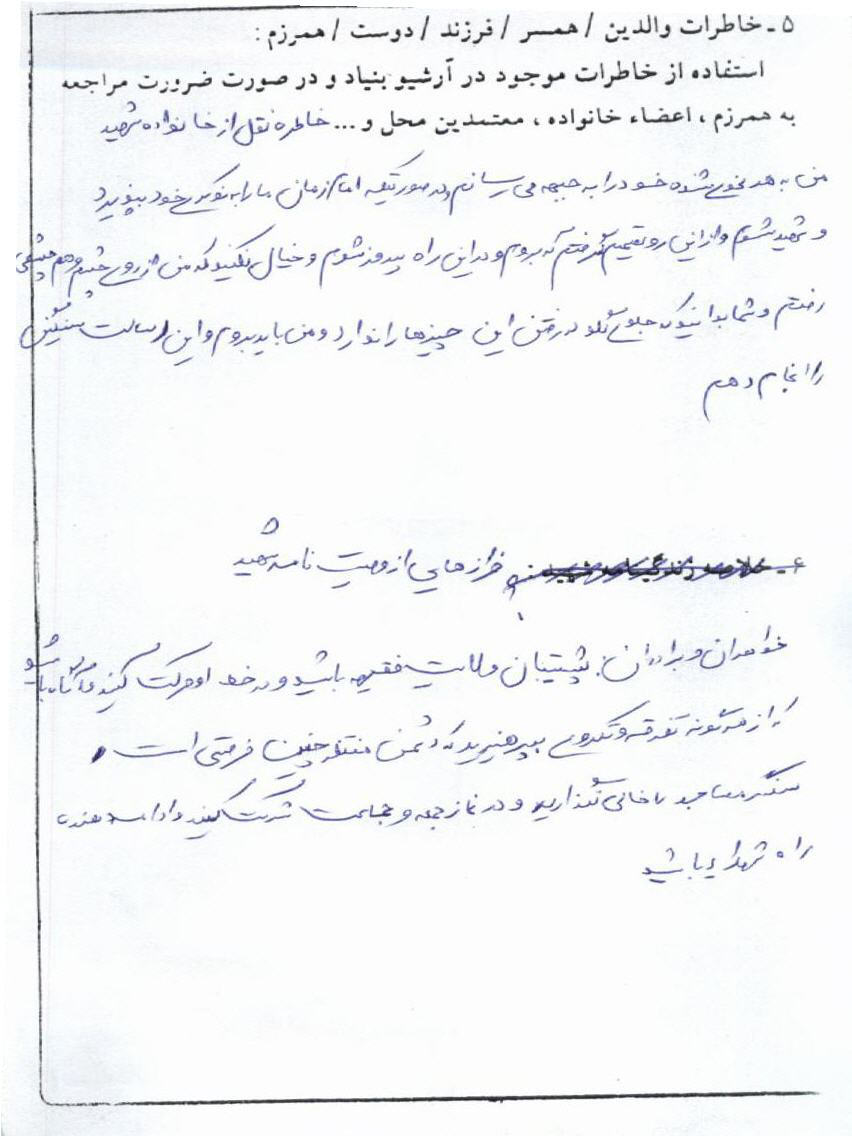 ۵ ـ خاطرات والدین / همسر / فرزند / دوست / همرزم :
استفاده از خاطرات موجود در آرشیو بنیاد و در صورت ضرورت مراجعه
به همرزم ، اعضاء خانواده ، معتمدین محل و ... خاطره نقل از خانواده شهید
من به هر نحوی شده خود را به جبهه می رسانم در صورتیکه امام زمان ما را به نوکری خود بپذیرد
و شهید شوم و از این رو تصمیم گرفتم که بروم و در این راه پیروز شوم و خیال نکنید که من از روی چشم و هم چشمی
رفتم و شما بدانید که جلوی گلوله رفتن این چیزها را ندارد و من باید بروم و این رسالت سنگین
را انجام دهم
۶ ـ فرازهایی از وصیت نامه شهید
خواهران و برادران : پشتیبان ولایت فقیه باشید و در خط او حرکت کنید و آگاه باشید
که از هرگونه تفرقه و تکروی بپرهیزید که دشمن منتظر چنین فرصتی است
سنگر مساجد را خالی نگذارید و در نماز جمعه و جماعت شرکت کنید و ادامه دهنده
راه شهداء باشید